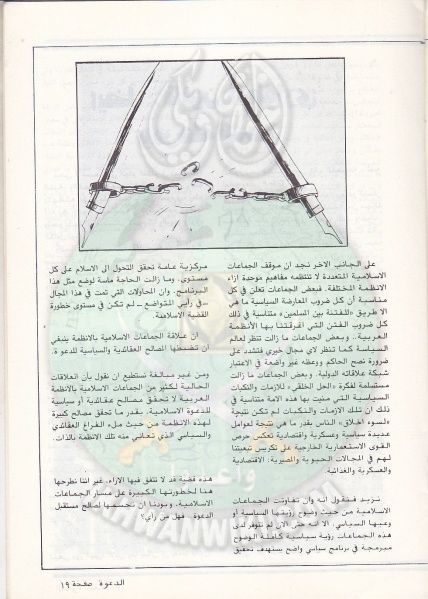 على الجانب الاخر نجد ان موقف الجماعات
الاسلامية المتعددة لا تنتظمه مفاهيم موحدة ازاء
الانظمة المختلفة. فبعض الجماعات تعلن في كل
مناسبة أن كل ضروب المعارضة السياسية ما هي
الا طريق «للفتنة بين المسلمين» متناسية في ذلك
كل ضروب الفتن التي اغرقتنا بها الأنظمة
العربية.. وبعض الجماعات ما زالت تنظر لعالم
السياسة كما تنظر لاي مجال خيري فتشدد على
ضرورة نصح الحاكم ووعظه غير واضعة في الاعتبار
شبكة علاقاته الدولية. وبعض الجماعات ما زالت
مستسلمة لفكرة «الحل الخلقي» للازمات والنكبات
السياسية التي منيت بها هذه الامة متناسية في
ذلك ان تلك الازمات والنكبات لم تكن نتيجة
«لسوء اخلاق» الناس بقدر ما هي نتيجة لعوامل
عديدة سياسية وعسكرية واقتصادية تعكس حرص
القوى الاستعمارية الخارجية على تكريس تبعيتنا
لهم في المجالات الحيوية والمصيرية: الاقتصادية
والعسكرية والغذائية
نزيد فنقول انه وان تفاوتت الجماعات
الاسلامية من حيث وضوح رؤيتها السياسية أو
وعيها السياسي. الا انه حتى الان لم تتوفر لدى
هذه الجماعات رؤية سياسية كاملة الوضوح
مبرمجة في برنامج سياسي واضح يستهدف تحقيق
مركزية عامة تحقق التحول الى الاسلام على كل
مستوى. وما زالت الحاجة ماسة لوضع مثل هذا
البرنامج. وان المحاولات التي تمت في هذا المجال
ـ في رأيي المتواضع ـ لم تكن في مستوى خطورة
القضية الاسلامية
ان علاقة الجماعات الاسلامية بالانظمة ينبغي
ان تضبطها المصالح العقائدية والسياسية للدعوة.
ومن غير مبالغة نستطيع ان نقول بأن العلاقات
الحالية لكثير من الجماعات الاسلامية بالانظمة
العربية لا تحقق مصالح عقائدية أو سياسية
للدعوة الاسلامية. بقدر ما تحقق مصالح كبيرة
لهذه الانظمة من حيث ملء الفراغ العقائدي
والسياسي الذي تعاني منه تلك الانظمة بالذات.
هذه قضية قد لا تتفق فيها الاراء، غير اننا نطرحها
هنا لخطورتها الكبيرة على مسار الجماعات
الاسلامية. وبودنا ان نحسمها لصالح مستقبل
الدعوة.. فهل من رأي؟
الدعوة صفحة ١٩